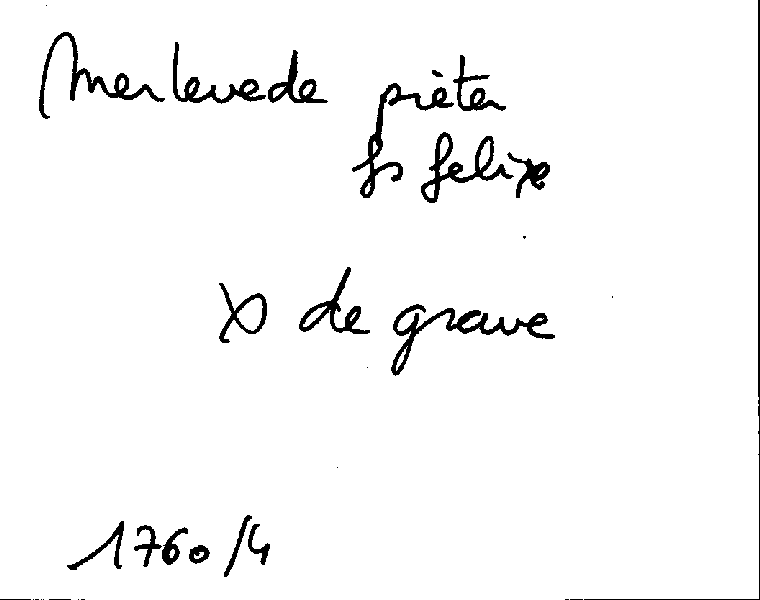 Merlevede pièter
fs felixe
x de grave
1760/4